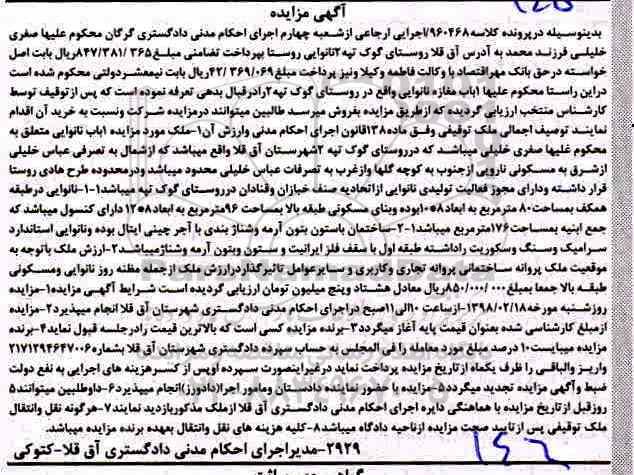 آگهی مزایده
بدینوسیله درپرونده کلاسه ۹۶۰۴۶۸/اجرایی ارجاعی ازشعبه چهارم اجرای احکام مدنی دادگستری گرگان محکوم علیها صغری
خلیلی فرزند محمد به آدرس آق قلا روستای گوک تپه ۲نانوایی روستا بپرداخت تضامنی مبلغ۳۶۵ /۸۴۷/۳۸۱ریال بابت اصل
خواسته درحق بانک مهراقتصاد با وکالت فاطمه وکیلا ونیز پرداخت مبلغ۳۶۹/۰۶۹ /۴۲ریال بابت نیمعشردولتی محکوم شده است
دراین راستا محکوم علیها ۱باب مغازه نانوایی واقع در روستای گوک تپه ۲رادرقبال بدهی تعرفه نموده است که پس ازتوقیف توسط
کارشناس منتخب ارزیابی گردیده که ازطریق مزایده بفروش میرسد طالبین میتوانند درمزایده شرکت ونسبت به خرید آن اقدام
نمایند توصیف اجمالی ملک توقیفی وفق ماده۱۳۸قانون اجرای احکام مدنی وارزش آن۱-ملک مورد مزایده ۱باب نانوایی متعلق به
محکوم علیها صغری خلیلی میباشد که درروستای گوک تپه ۲شهرستان آق قلا واقع میباشد که ازشمال به تصرفی عباس خلیلی
ازشرق به مسکونی نارویی ازجنوب به کوچه گلها وازغرب به تصرفات عباس خلیلی محدود میباشد ودرمحدوده طرح هادی روستا
قرار داشته ودارای مجوز فعالیت تولیدی نانوایی ازاتحادیه صنف خبازان وقنادان درروستای گوک تپه میباشد۱-۱-نانوایی درطبقه
همکف بمساحت۸۰ مترمربع به ابعاد۸*۱۰بوده وبنای مسکونی طبقه بالا بمساحت ۹۶مترمربع به ابعاد۸*۱۲دارای کنسول میباشد که
جمع ابنیه بمساحت۱۷۶مترمربع میباشد۱-۲-ساختمان باستون بتون آرمه وشناژ بندی با آجر چینی ایتال بوده ونانوایی استاندارد
سرامیک وسنگ وسکوریت راداشته طبقه اول با سقف فلز ایرانیت و ستون وبتون آرمه وشناژمیباشد۲-ارزش ملک باتوجه به
موقعیت ملک پروانه ساختمانی پروانه تجاری وکاربری و سایرعوامل تاثیرگذاردرارزش ملک ازجمله مظنه روز نانوایی ومسکونی
طبقه بالا جمعا بمبلغ۰۰۰ /۸۵۰/۰۰۰ریال معادل هشتاد وپنج میلیون تومان ارزیابی گردیده است شرایط آگهی مزایده۱-مزایده
روزشنبه مورخه۱۳۹۸/۰۲/۱۸-ازساعت ۱۰الی۱۱صبح دراجرای احکام مدنی دادگستری شهرستان آق قلا انجام میپذیرد۲-مزایده
ازمبلغ کارشناسی شده بعنوان قیمت پایه آغاز میگردد۳-برنده مزایده کسی است که بالاترین قیمت رادرجلسه قبول نماید۴-برنده
مزایده میبایست۱۰ درصد مبلغ مورد معامله را فی المجلس به حساب سپرده دادگستری شهرستان آق قلا بشماره۲۱۷۱۲۹۴۶۴۷۰۰۶
واریز والباقی را ظرف یکماه ازتاریخ مزایده پرداخت نماید درغیراینصورت سپرده اوپس از کسرهزینه های اجرایی به نفع دولت
ضبط وآگهی مزایده تجدید میگردد۵-مزایده با حضور نماینده دادستان ومامور اجرا(دادورز)انجام میپذیرد۶-داوطلبین میتوانند۵
روزقبل ازتاریخ مزایده با هماهنگی دایره اجرای احکام مدنی دادگستری آق قلا ازملک مذکوربازدید نمایند۷-هرگونه نقل وانتقال
ملک توقیفی پس ازتایید صحت مزایده ازناحیه دادگاه میباشد۸-کلیه هزینه های نقل وانتقال بعهده برنده مزایده میباشد.
۲۹۲۹-مدیراجرای احکام مدنی دادگستری آق قلا-کتوکی